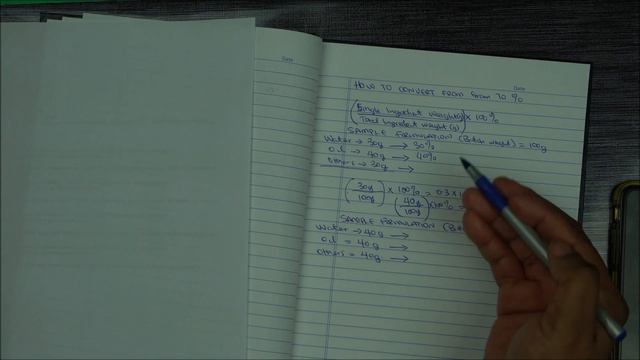 Date
Date
HOW TO CONVERT FROM GRAM TO %
(Single Ingredient Weight(g) / Total Ingredient weight (g)) × 100%
SAMPLE FORMULATION (Batch weight) = 100g
Water → 30g → 30%
Oil → 40g → 40%
Others → 30g →
(30g / 100g) × 100% = 0.3 × 1
(40g / 100g) × 100% =
SAMPLE FORMULATION (B
Water → 40g →
Oil = 40g →
Others = 40g →